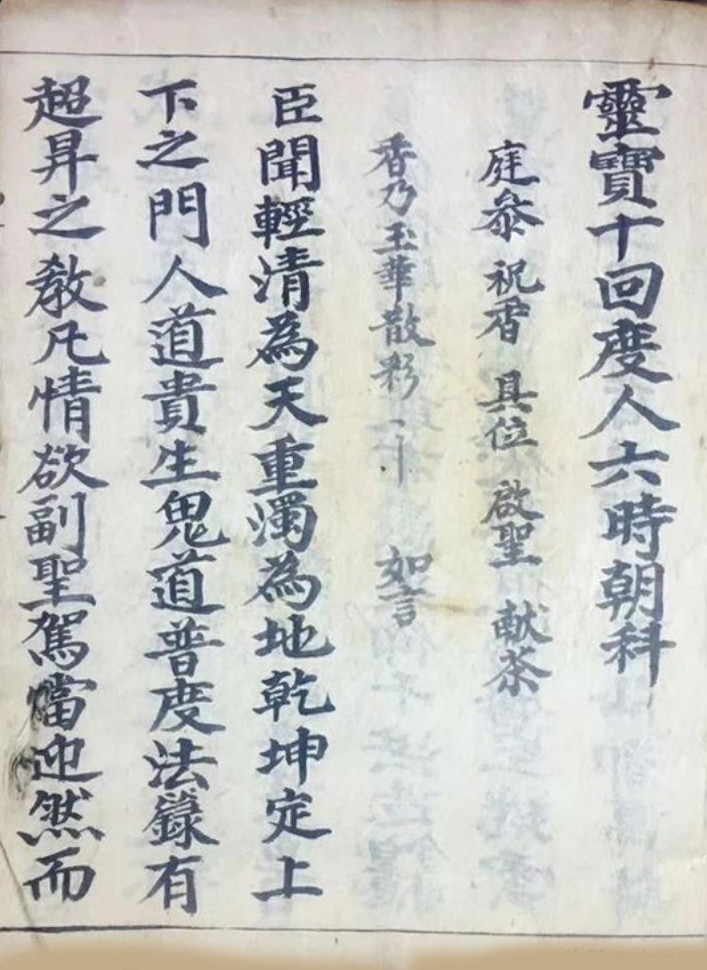 靈寶十回度人六時朝科
庭叅 祝香 具位 啟聖 献茶
香乃玉華散彩 如言
臣聞輕清為天重濁為地乾坤定上
下之門人道貴生鬼道普度法籙有
超昇之教凢情欲副聖駕當迎然而